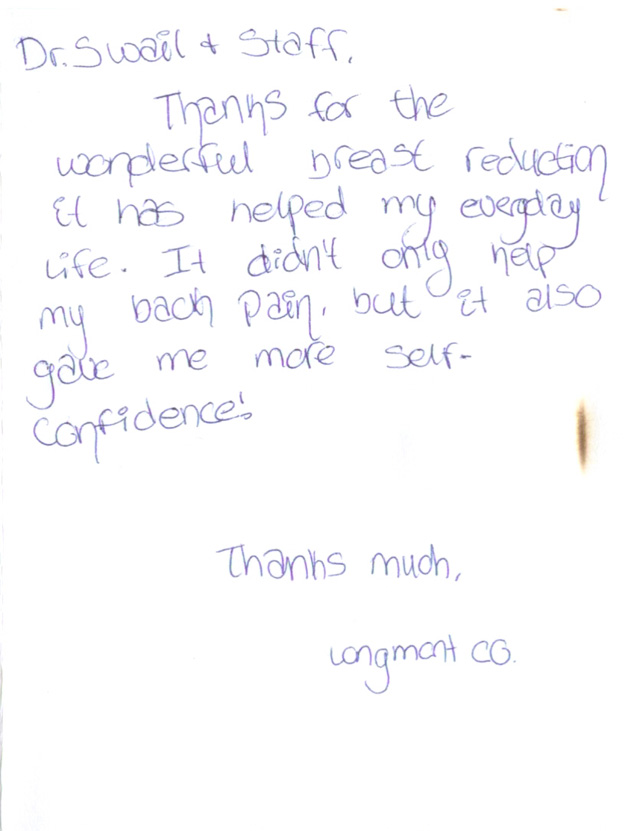 Dr. Swail + Staff,
Thanks for the
wonderful breast reduction
it has helped my everyday
life. It didn't only help
my back pain, but it also
gave me more self-
confidence!
Thanks much,
Longmont CO.